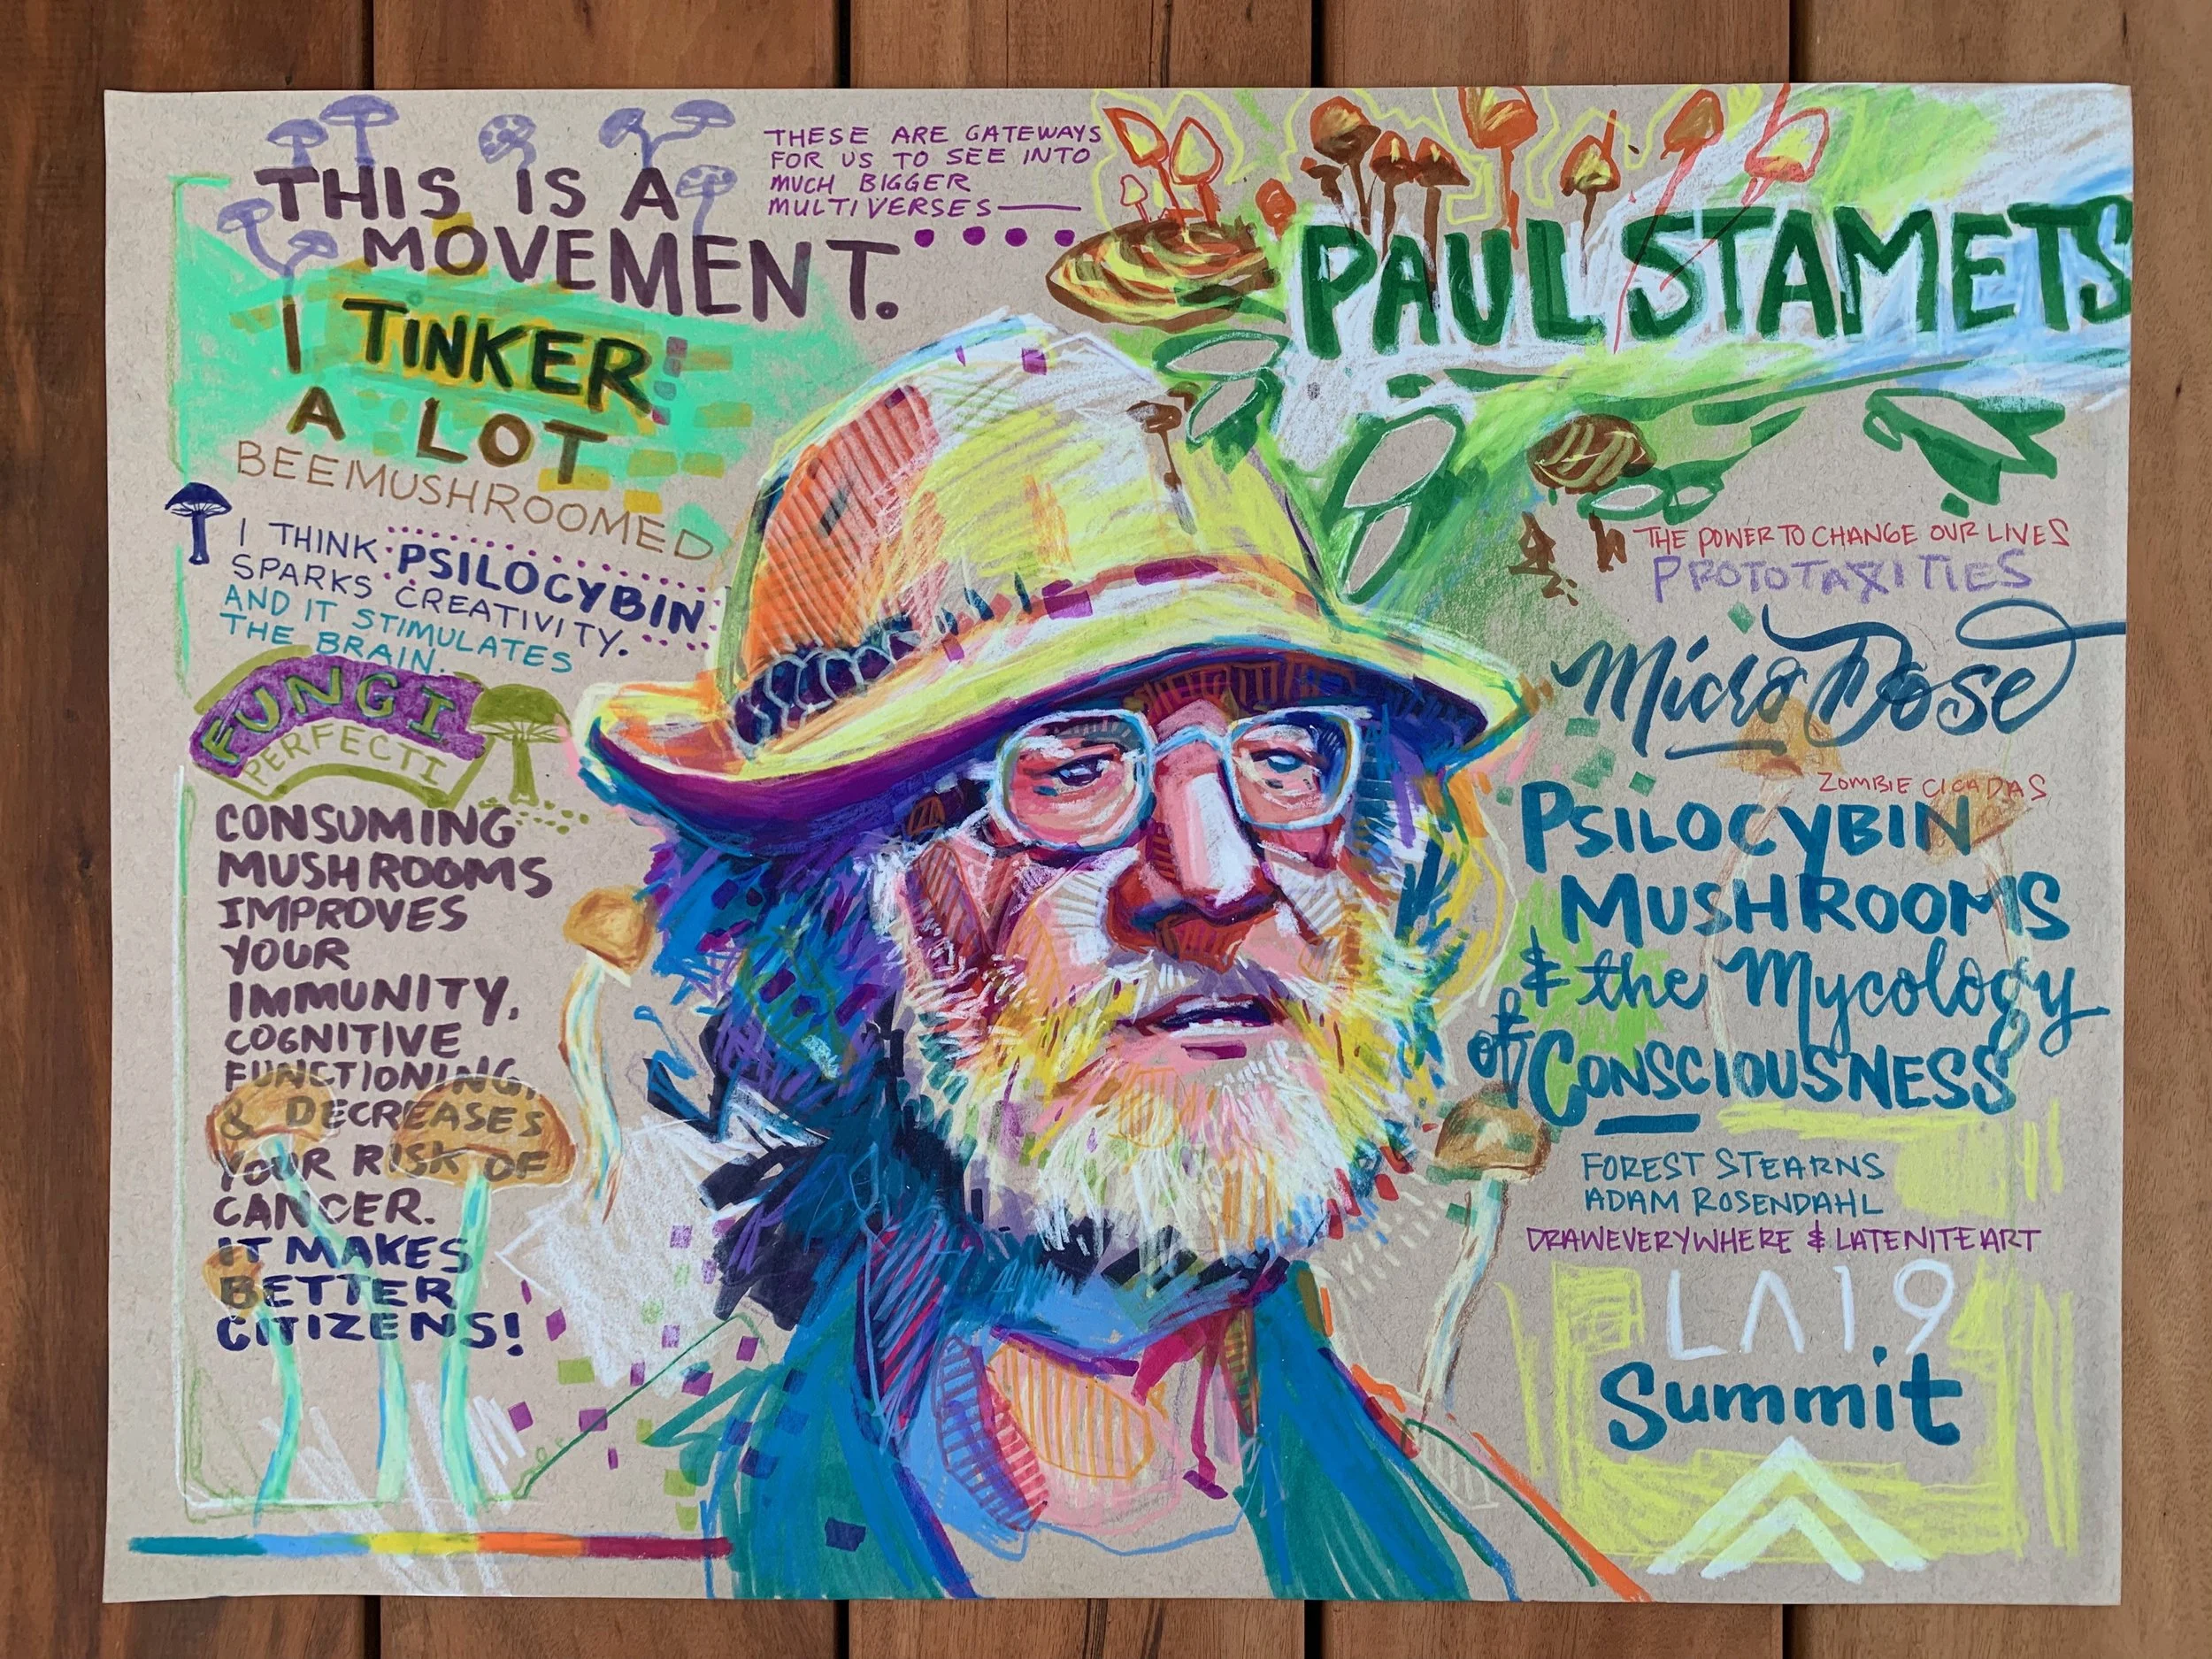 THIS IS A
MOVEMENT.
I TINKER
A LOT
BEEMUSHROOMED
I THINK PSILOCYBIN
SPARKS CREATIVITY.
AND IT STIMULATES
THE BRAIN.
FUNGI
PERFECTI
CONSUMING
MUSHROOMS
IMPROVES
YOUR
IMMUNITY,
COGNITIVE
FUNCTIONING,
& DECREASES
YOUR RISK OF
CANCER.
IT MAKES
BETTER
CITIZENS!
THESE ARE GATEWAYS
FOR US TO SEE INTO
MUCH BIGGER
MULTIVERSES
PAUL STAMETS
THE POWER TO CHANGE OUR LIVES
PROTOTAXITIES
Micro Dose
ZOMBIE CICADAS
PSILOCYBIN
MUSHROOMS
& the Mycology
of CONSCIOUSNESS
FOREST STEARNS
ADAM ROSENDAHL
DRAWEVERYWHERE & LATENITEART
LA19
Summit